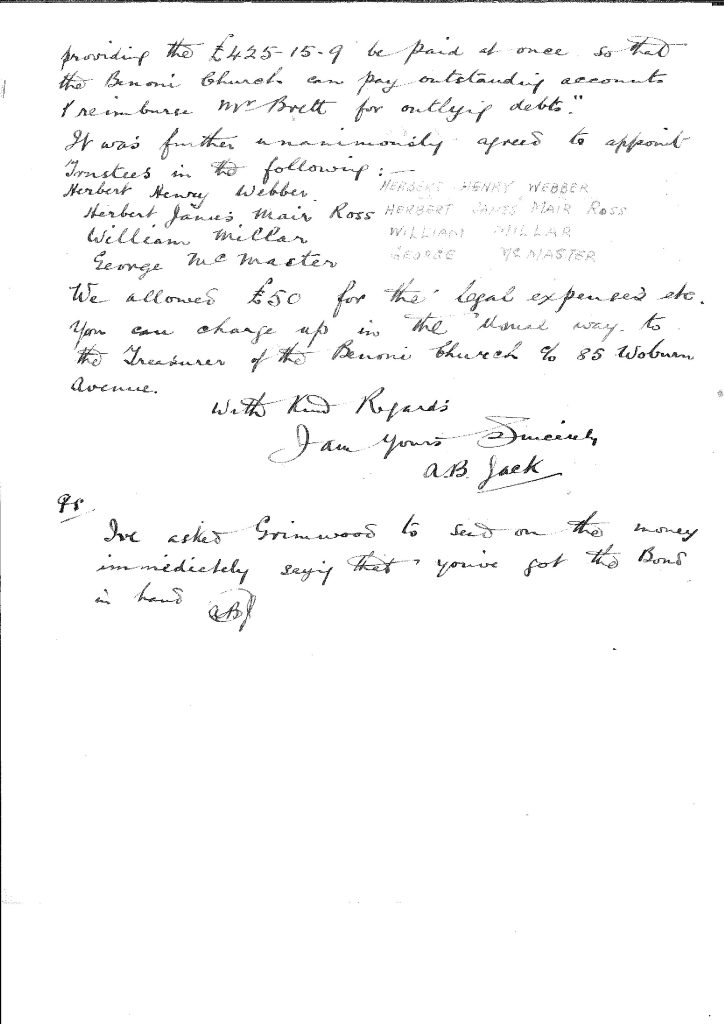 providing the £425-15-9 be paid at once so that
the Benoni Church can pay outstanding accounts
& reimburse Mr Brett for outlyig debts."
It was further unanimously agreed to appoint
Trustees in the following:—
Herbert Henry Webber HERBERT HENRY WEBBER
Herbert James Mair Ross HERBERT JAMES MAIR ROSS
William Millar WILLIAM MILLAR
George McMaster GEORGE McMASTER
We allowed £50 for the legal expenses etc.
You can charge up in the usual way to
the Treasurer of the Benoni Church c/o 85 Woburn
Avenue.
With Kind Regards
I am Yours Sincerely
A.B. Jack
Ps.
Ive asked Grimwood to send on the money
immedietely sayig that youve got the Bond
in hand ABJ